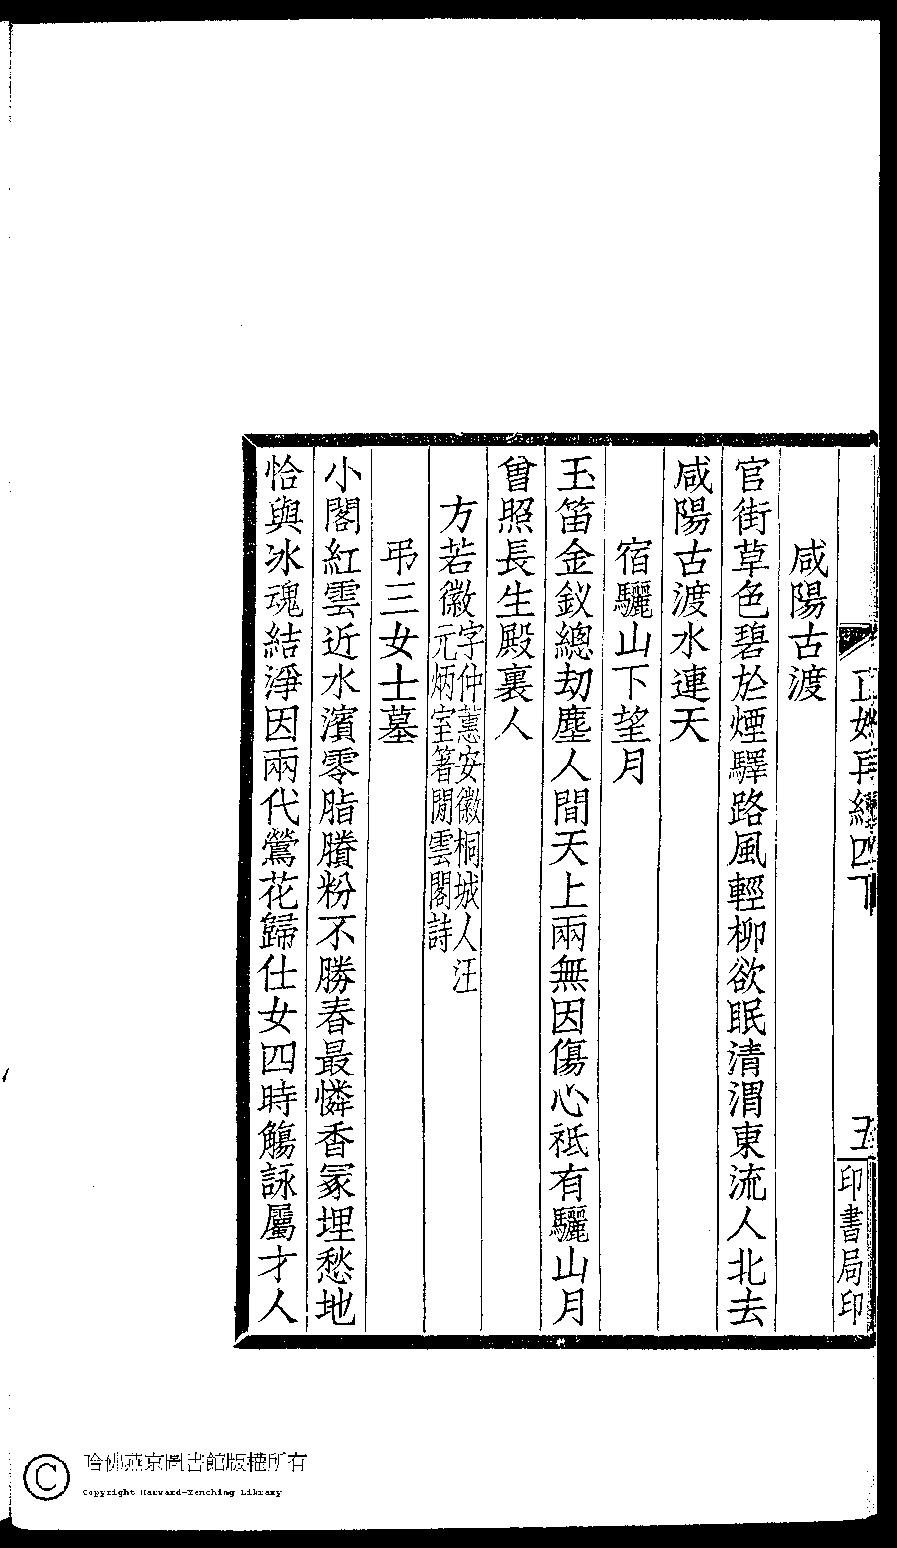 咸陽古渡
官街草色碧於煙驛路風輕柳欲眠清渭東流人北去
咸陽古渡水連天
宿驪山下望月
玉笛金釵總劫塵人間天上兩無因傷心祗有驪山月
曾照長生殿裏人
方若徽字仲蕙安徽桐城人汪
元炳室著閒雲閣詩
弔三女士墓
小閣紅雲近水濱零脂賸粉不勝春最憐香冢埋愁地
恰與冰魂結淨因兩代鶯花歸仕女四時觴詠屬才人
四下
五
印書局印
哈佛燕京圖書館版權所有
Copyright Harvard-Yenching Library